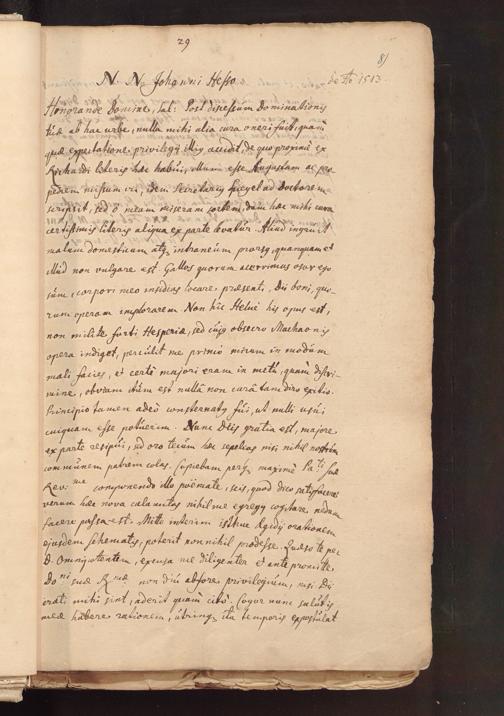 29
8)
N N Johanni Hesso
de Ao 1513
Honorande Domine, Sal: Post discessum dominationis
tuæ ab hac urbe, nulla mihi alia cura oneri fuit, quam
quæ expectatione privilegij illius accidit, de quo proxime ex
Richardi literis hæc habui, illum esse Augustam ac pro
pediem missum iri, idem Secretarius Spiegel ad Doctorem
scripsit, sed ô meam miseram sortem, dum hac mihi cura
certissimis literis aliqua ex parte levatur. Aliud ingruit
malum domesticum atq intraneum prorsq, quanquam et
illud non vulgare est. Gallos quorum acerrimus osor ego
sum, corpori meo insidias locare præsenti, Dii boni, quo
rum operam implorarem. Non hic Helue his opus est,
non milite forti Hesperiæ, sed cujus obsecro Machaonis
opera indiget, perculit me primò mirum in modum
mali facies, et certè majori eram in metu, quam discri-
mine, obviam etiam est nulla non cura tam diro exitio.
Principio tamen adeò consternatus fui, ut nulli usui
cuiquam esse potuerim. Nunc Diis gratia est, majore
ex parte resipui, sed oro tecum hæc sepelias nisi nihil nostrum
communem patrem colas. Cupiebam maxime Pa.ti suæ
Rev:mæ componendo illo poëmate, scis, quod dico satisfacere
verum hæc nova calamitas nihil me egregij cogitare, nedum
facere passa est. Mitto interim orationem
ejusdem schematis, poterit non nihil prodesse. Quæso te per
D. Omnipotentem, excusa me diligenter et ante promitte,
Doni suæ Rmæ non diu abfore privilegium, nisi Dii
irati mihi sint, aderit quam citò. Cogor nunc salutis
meæ habere rationem, utrinq ita temporis expostulat